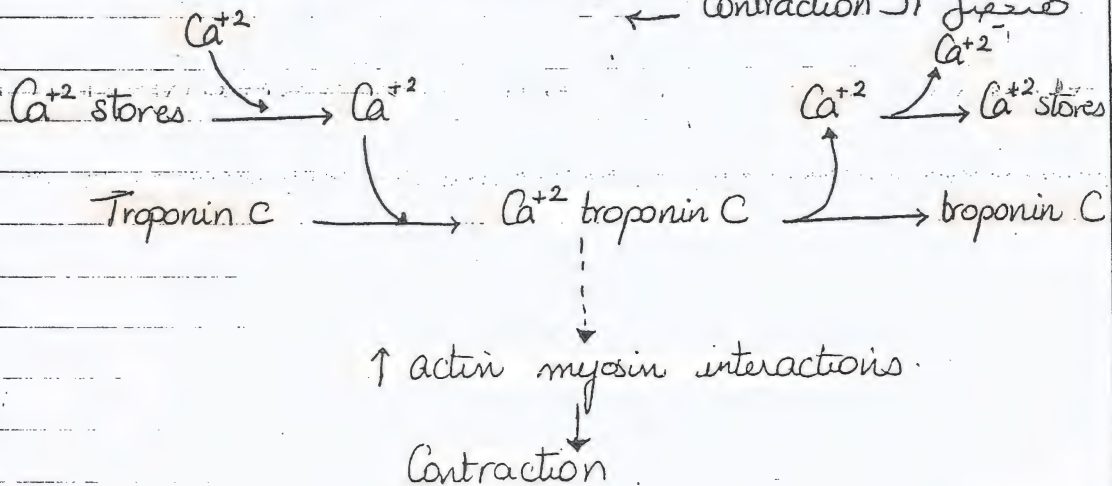 ← Contraction ال
Ca⁺² Ca⁺²
Ca⁺² stores → Ca⁺² Ca⁺² → Ca⁺² stores
Troponin C → Ca⁺² troponin C → troponin C
↑ actin myosin interactions.
Contraction